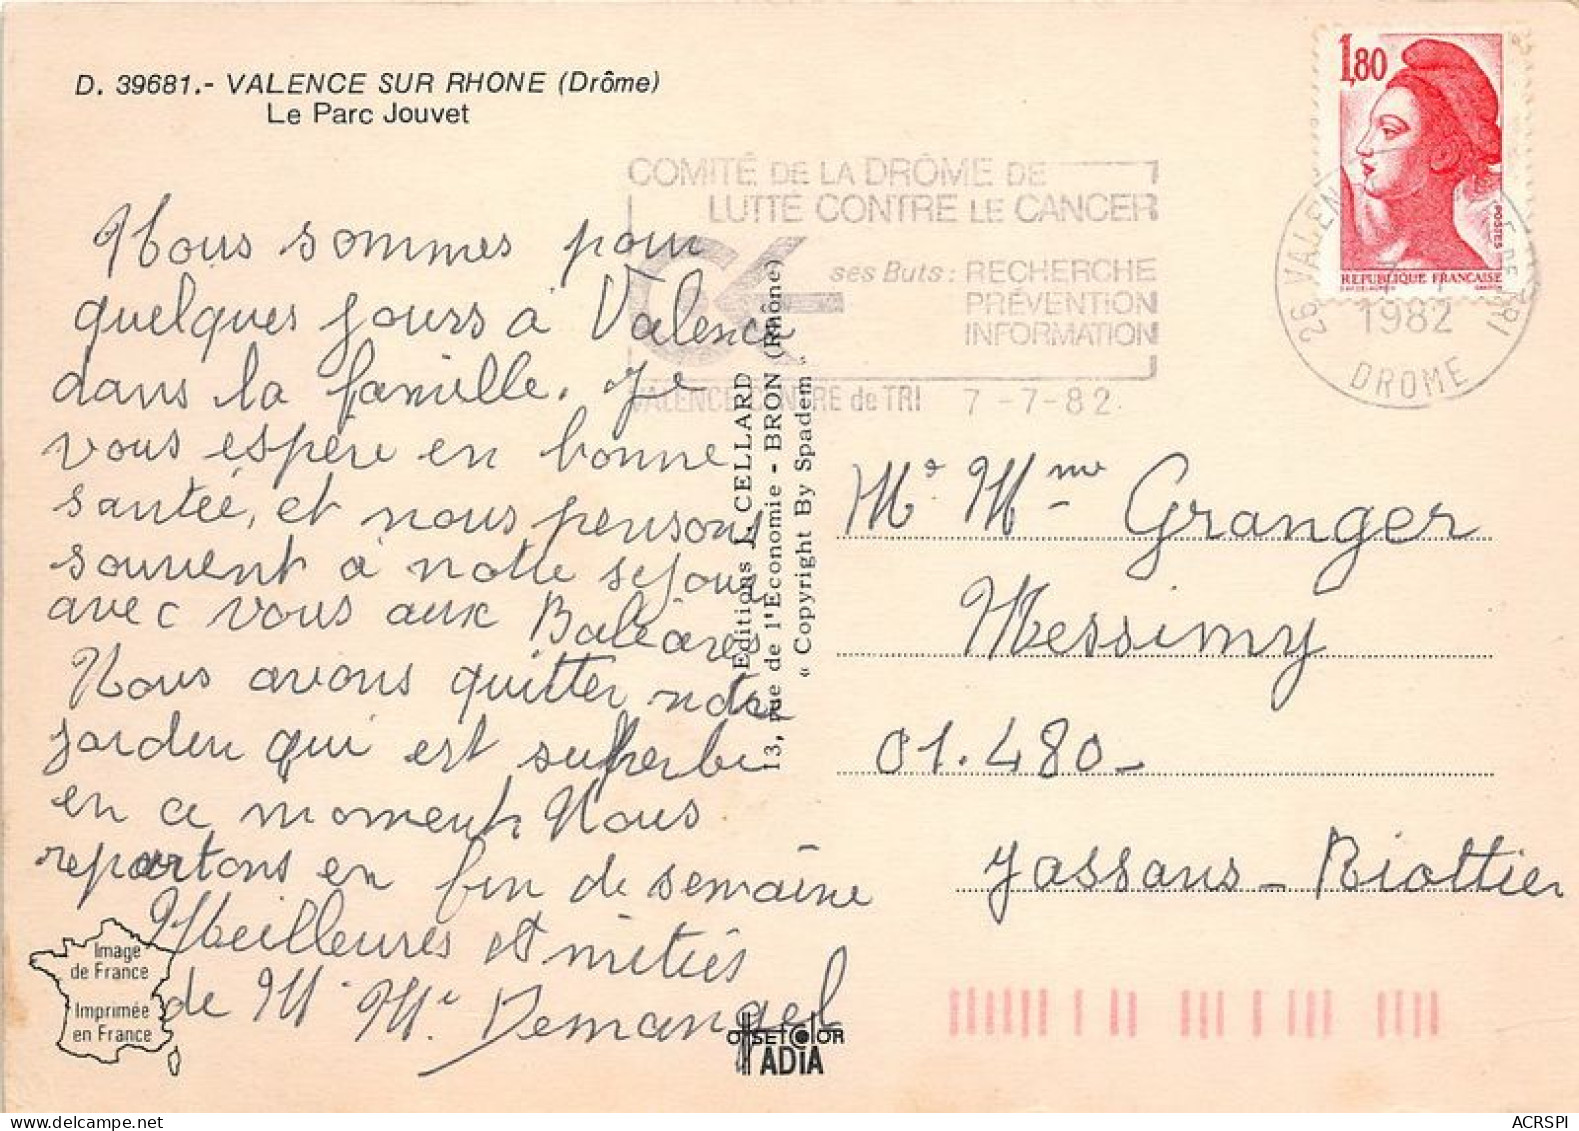 D. 39681.- VALENCE SUR RHONE (Drôme)
Le Parc Jouvet
1,80
POSTES
REPUBLIQUE FRANCAISE
COMITÉ DE LA DRÔME DE
LUTTE CONTRE LE CANCER
ses Buts : RECHERCHE
PRÉVENTION
INFORMATION
VALENCE CENTRE de TRI 7 - 7 - 82
26 VALEN E DE TRI
1982
DROME
Nous sommes pour
quelques jours à Valence
dans la famille. Je
vous espère en bonne
santée, et nous pensons
souvent à notre séjour
avec vous aux Baléares
Nous avons quitter notre
jardin qui est superbe
en ce moment. Nous
repartons en fin de semaine
Meilleures et mitiés
de M. Me Demangel
Editions J. CELLARD
13, rue de l'Economie - BRON (Rhône)
« Copyright By Spadem »
M. Mme Granger
Messimy
01.480-
Jassans-Riottier
Image
de France
Imprimée
en France
OFFSET COLOR
ADIA
ACRSPI